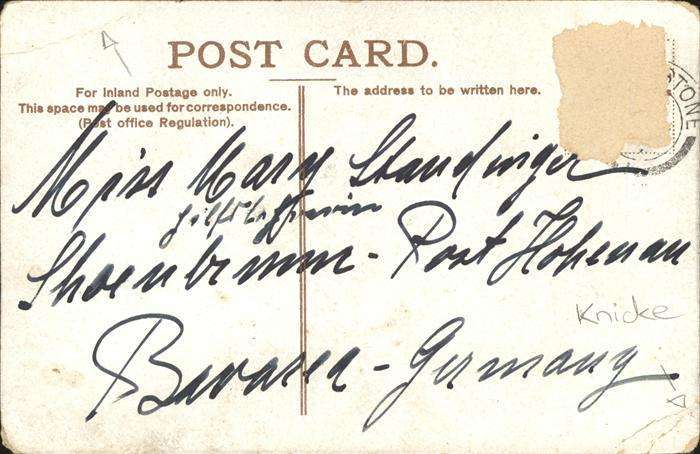 POST CARD.
For Inland Postage only.
This space may be used for correspondence.
(Post office Regulation).
The address to be written here.
STONE
Miss Mary Standinger
Shoenbrunn - Post Hohenau
Knicke
Bavaria - Germany